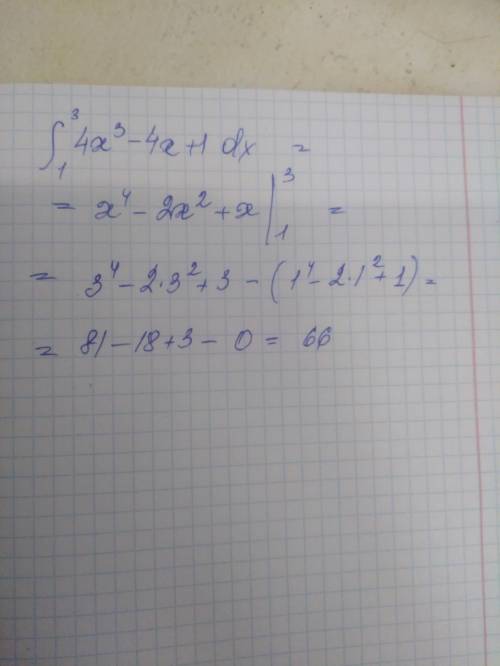 ∫₁³ 4x³ - 4x + 1 dx =
= x⁴ - 2x² + x |₁³ =
= 3⁴ - 2·3² + 3 - (1⁴ - 2·1² + 1) =
= 81 - 18 + 3 - 0 = 66